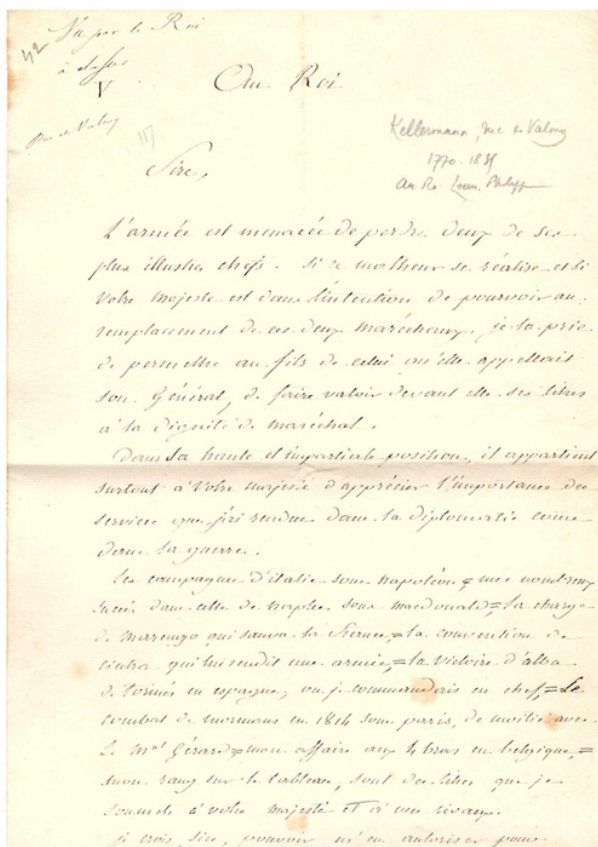 42 Vu par le Roi
à classer
V
Duc de Valmy
117
Au Roi
Kellermann, duc de Valmy
1770-1835
au Roi Louis Philippe
Sire,
L'armée est menacée de perdre deux de ses
plus illustres chefs. si ce malheur se réalise et si
Votre majesté est dans l'intention de pourvoir au
remplacement de ces deux maréchaux, je la prie
de permettre au fils de celui qu'elle appellait
son Général, de faire valoir devant elle ses titres
à la dignité de maréchal.
Dans sa haute et impartiale position, il appartient
surtout à Votre majesté d'apprécier l'importance des
services que j'ai rendus dans la diplomatie comme
dans la guerre.
Les campagnes d'italie sous napoléon = mes nombreux
succès dans celle de naples sous macdonald = la charge
de marengo qui sauva la france, = la convention de
cintra qui lui rendit une armée, = la victoire d'alba
de tormès en espagne, où je commandais en chef, = Le
combat de mormans en 1814 sous paris, de moitié avec
Le mal Gérard = mon affaire aux 4 bras en belgique, =
mon rang sur le tableau, sont des titres que je
soumets à votre majesté et à mes rivaux.
je crois, sire, pouvoir m'en autoriser pour